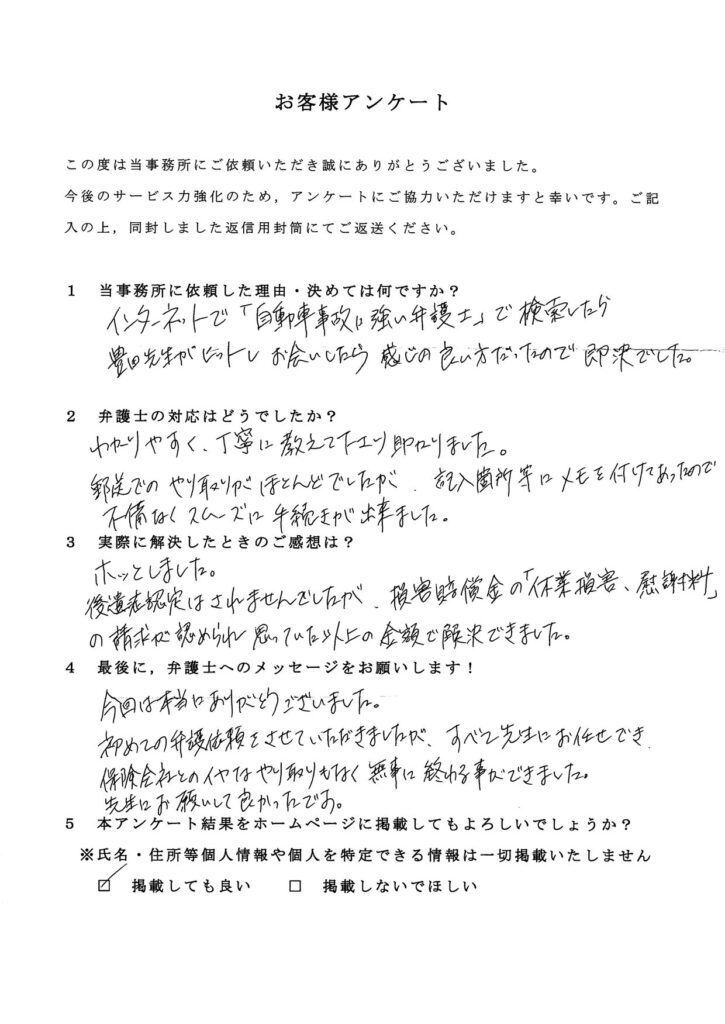 お客様アンケート
この度は当事務所にご依頼いただき誠にありがとうございました。
今後のサービス力強化のため，アンケートにご協力いただけますと幸いです。ご記
入の上，同封しました返信用封筒にてご返送ください。
１　当事務所に依頼した理由・決めては何ですか？
インターネットで「自動車事故に強い弁護士」で検索したら
豊田先生がヒットし お会いしたら 感じの良い方だったので 即決でした。
２　弁護士の対応はどうでしたか？
わかりやすく、丁寧に教えて下さり助かりました。
郵送でのやり取りがほとんどでしたが、記入箇所等にメモを付けてあったので
不備なくスムーズに手続きが出来ました。
３　実際に解決したときのご感想は？
ホッとしました。
後遺症認定はされませんでしたが、損害賠償金の「休業損害、慰謝料」
の請求が認められ 思っていた以上の金額で解決できました。
４　最後に，弁護士へのメッセージをお願いします！
今回は本当にありがとうございました。
初めての弁護依頼をさせていただきましたが、すべて先生にお任せでき、
保険会社とのイヤなやり取りもなく無事に終わる事ができました。
先生にお願いして良かったです。
５　本アンケート結果をホームページに掲載してもよろしいでしょうか？
※氏名・住所等個人情報や個人を特定できる情報は一切掲載いたしません
☑　掲載しても良い　　□　掲載しないでほしい